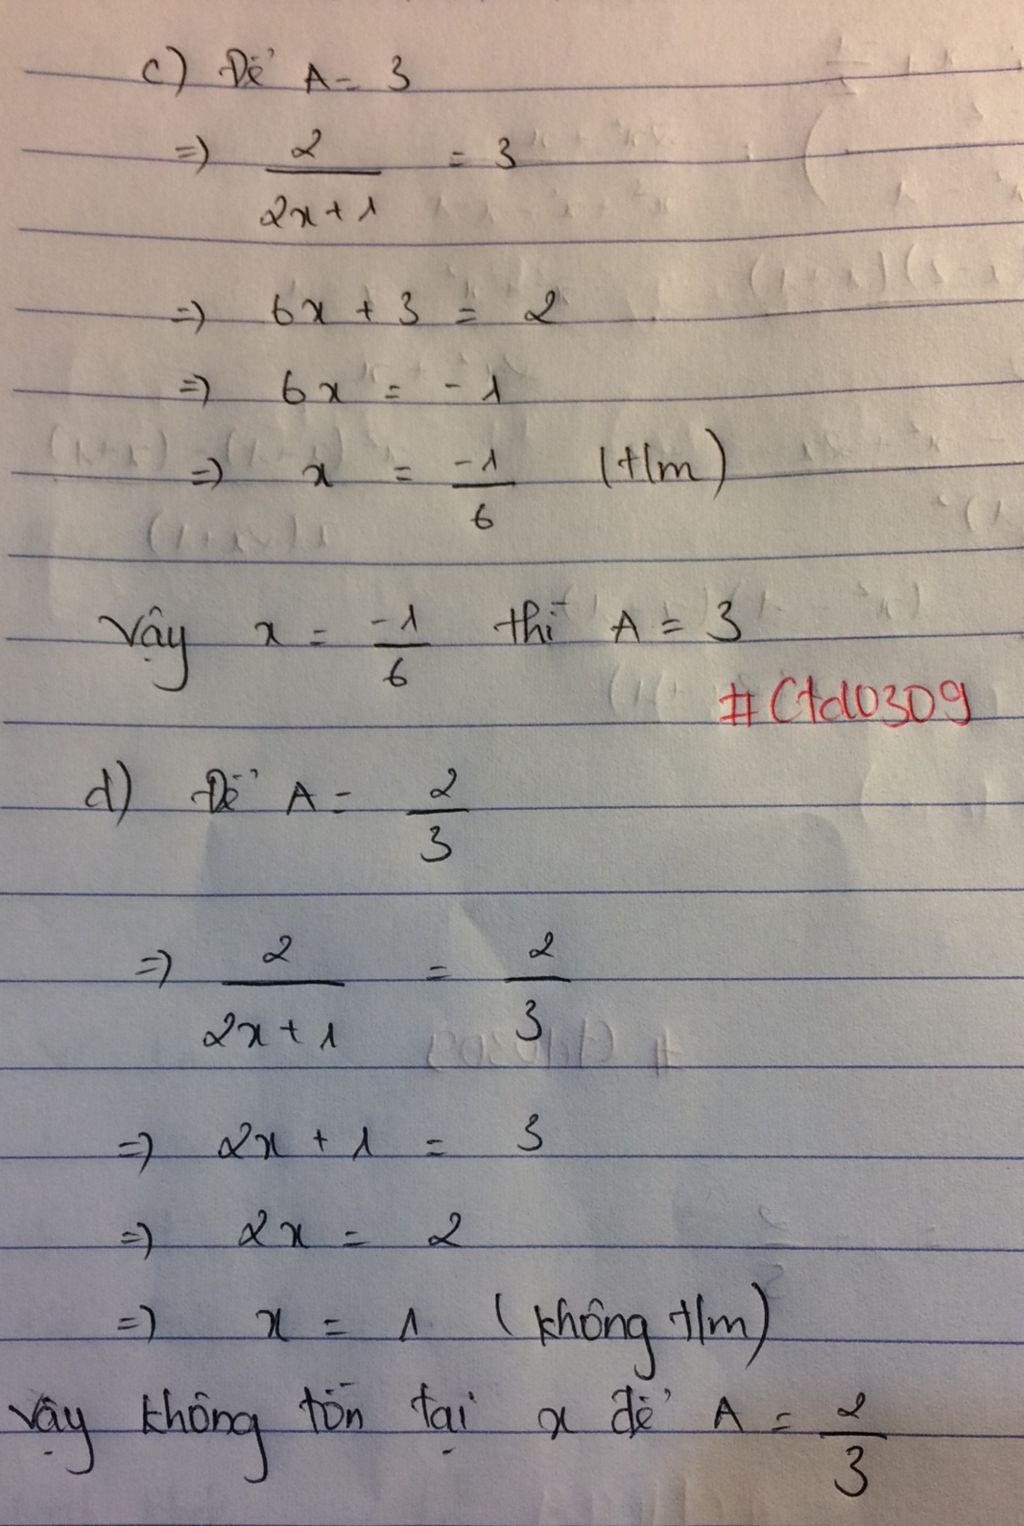 c) Để A = 3
=> 2/(2x+1) = 3
=> 6x + 3 = 2
=> 6x = -1
=> x = -1/6 (t/m)
Vậy x = -1/6 thì A = 3
#Ctd0309
d) Để A = 2/3
=> 2/(2x+1) = 2/3
=> 2x + 1 = 3
=> 2x = 2
=> x = 1 (không t/m)
Vậy không tồn tại x để A = 2/3